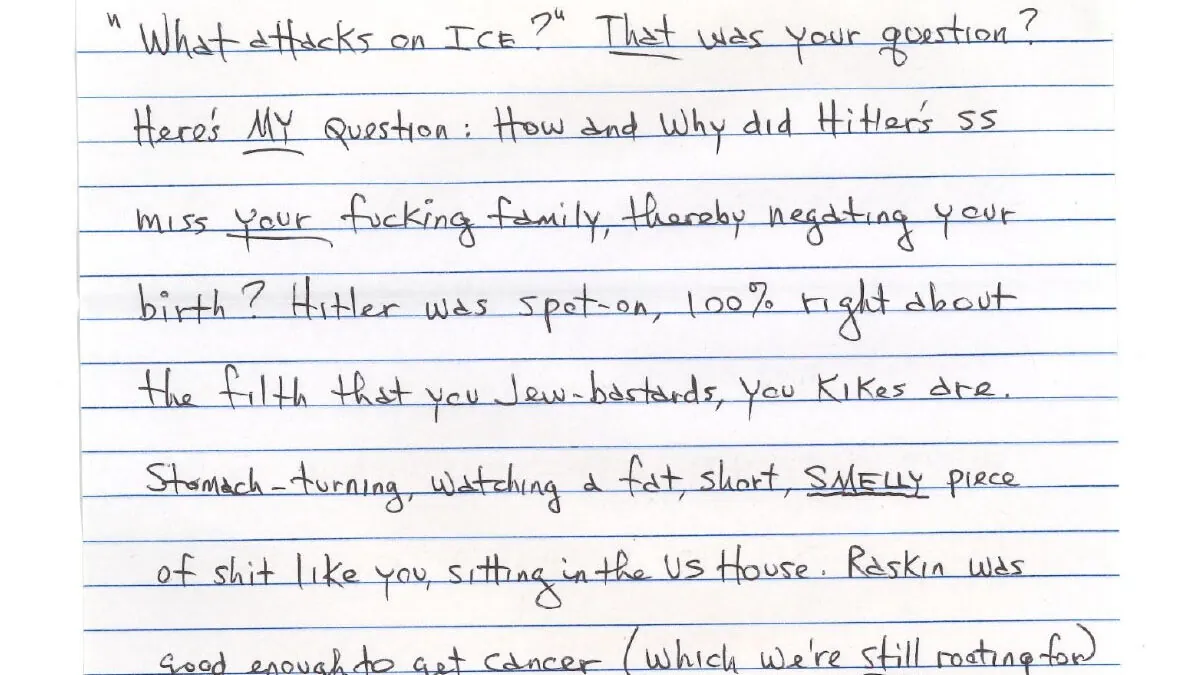 "What attacks on ICE?" That was your question?
Here's MY Question: How and Why did Hitler's SS
miss your fucking family, thereby negating your
birth? Hitler was spot-on, 100% right about
the filth that you Jew-bastards, you Kikes are.
Stomach-turning, watching a fat, short, SMELLY piece
of shit like you, sitting in the US House. Raskin was
good enough to get cancer (which we're still rooting for)